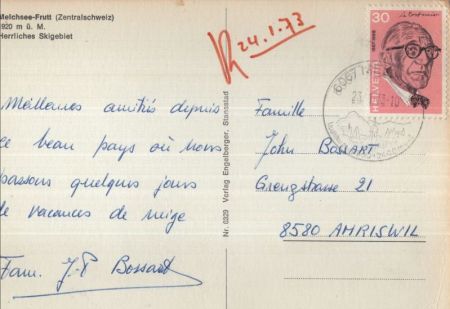 Melchsee-Frutt (Zentralschweiz)
1920 m ü. M.
Herrliches Skigebiet
R 24.1.73
30
HELVETIA
6067
Meilleures amitiés depuis
ce beau pays où nous
passons quelques jours
de vacances de neige
Fam. J-P Bossart
Nr. 0329 Verlag Engelberger, Stansstad
Famille
John BOSSART
Grenzstrasse 21
8580 AMRISWIL